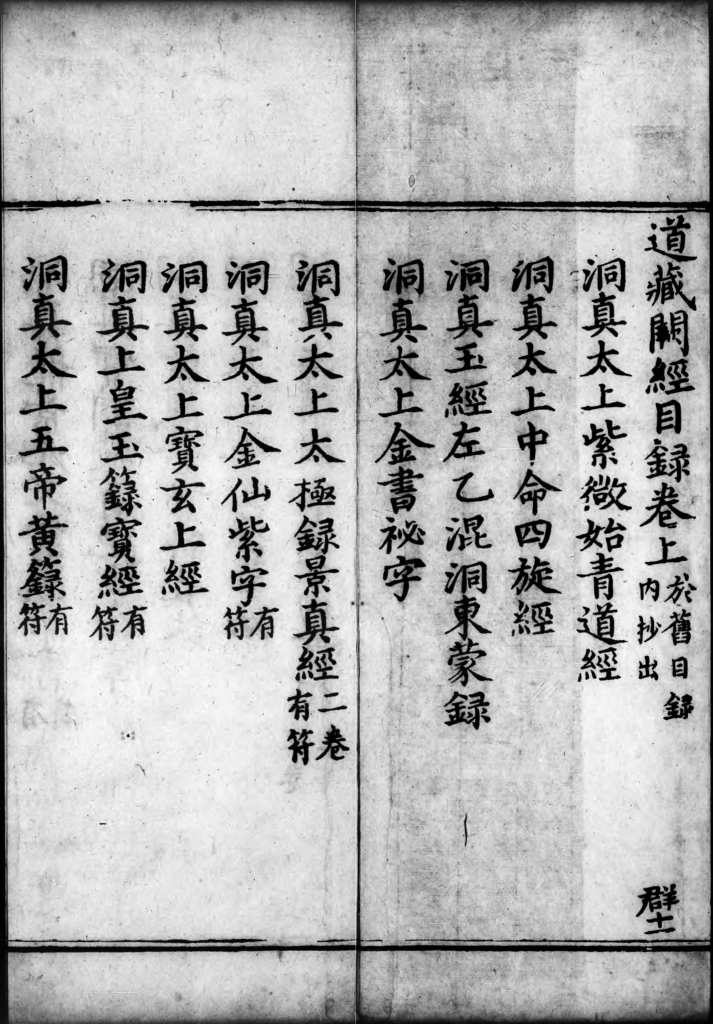 道藏闕經目録卷上 於舊目録内抄出 群十一
洞真太上紫微始青道經
洞真太上中命四旋經
洞真玉經左乙混洞東蒙録
洞真太上金書祕字
洞真太上太極録景真經二卷有符
洞真太上金仙紫字有符
洞真太上寶玄上經
洞真上皇玉籙寶經有符
洞真太上五帝黄籙有符